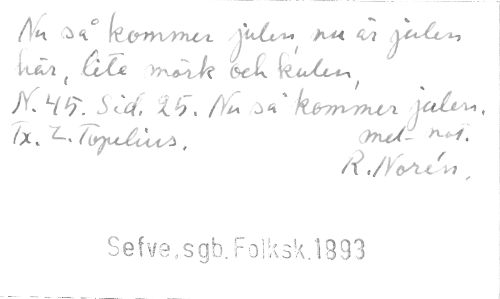 Nu så kommer julen, nu är julen
här, lite mörk och kulen,
N.45. Sid. 25. Nu så kommer julen.
Tx. Z. Topelius. mel- not.
R. Norén.
Sefve, sgb. Folksk. 1893